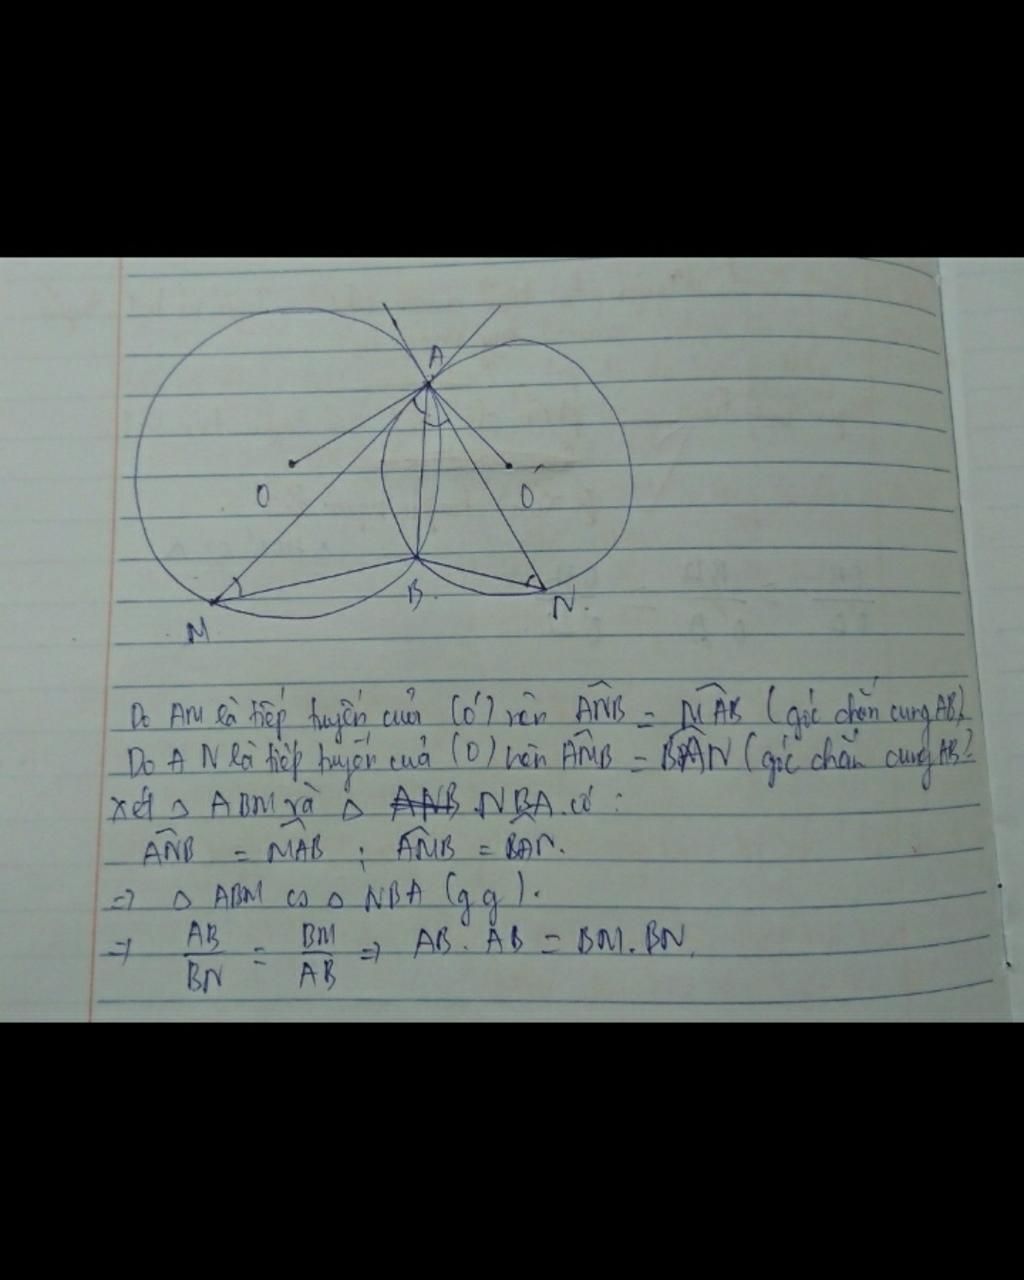 A
O
O'
B
N
M
Do AM là tiếp tuyến của (O') nên ANB̂ = MAB̂ (góc chắn cung AB)
Do AN là tiếp tuyến của (O) nên AMB̂ = BAN̂ (góc chắn cung AB)
xét △ ABM và △ ANB NBA có :
ANB̂ = MAB̂ ; AMB̂ = BAN̂.
=> △ ABM ∽ △ NBA (g g).
=> AB/BN = BM/AB => AB . AB = BM . BN.